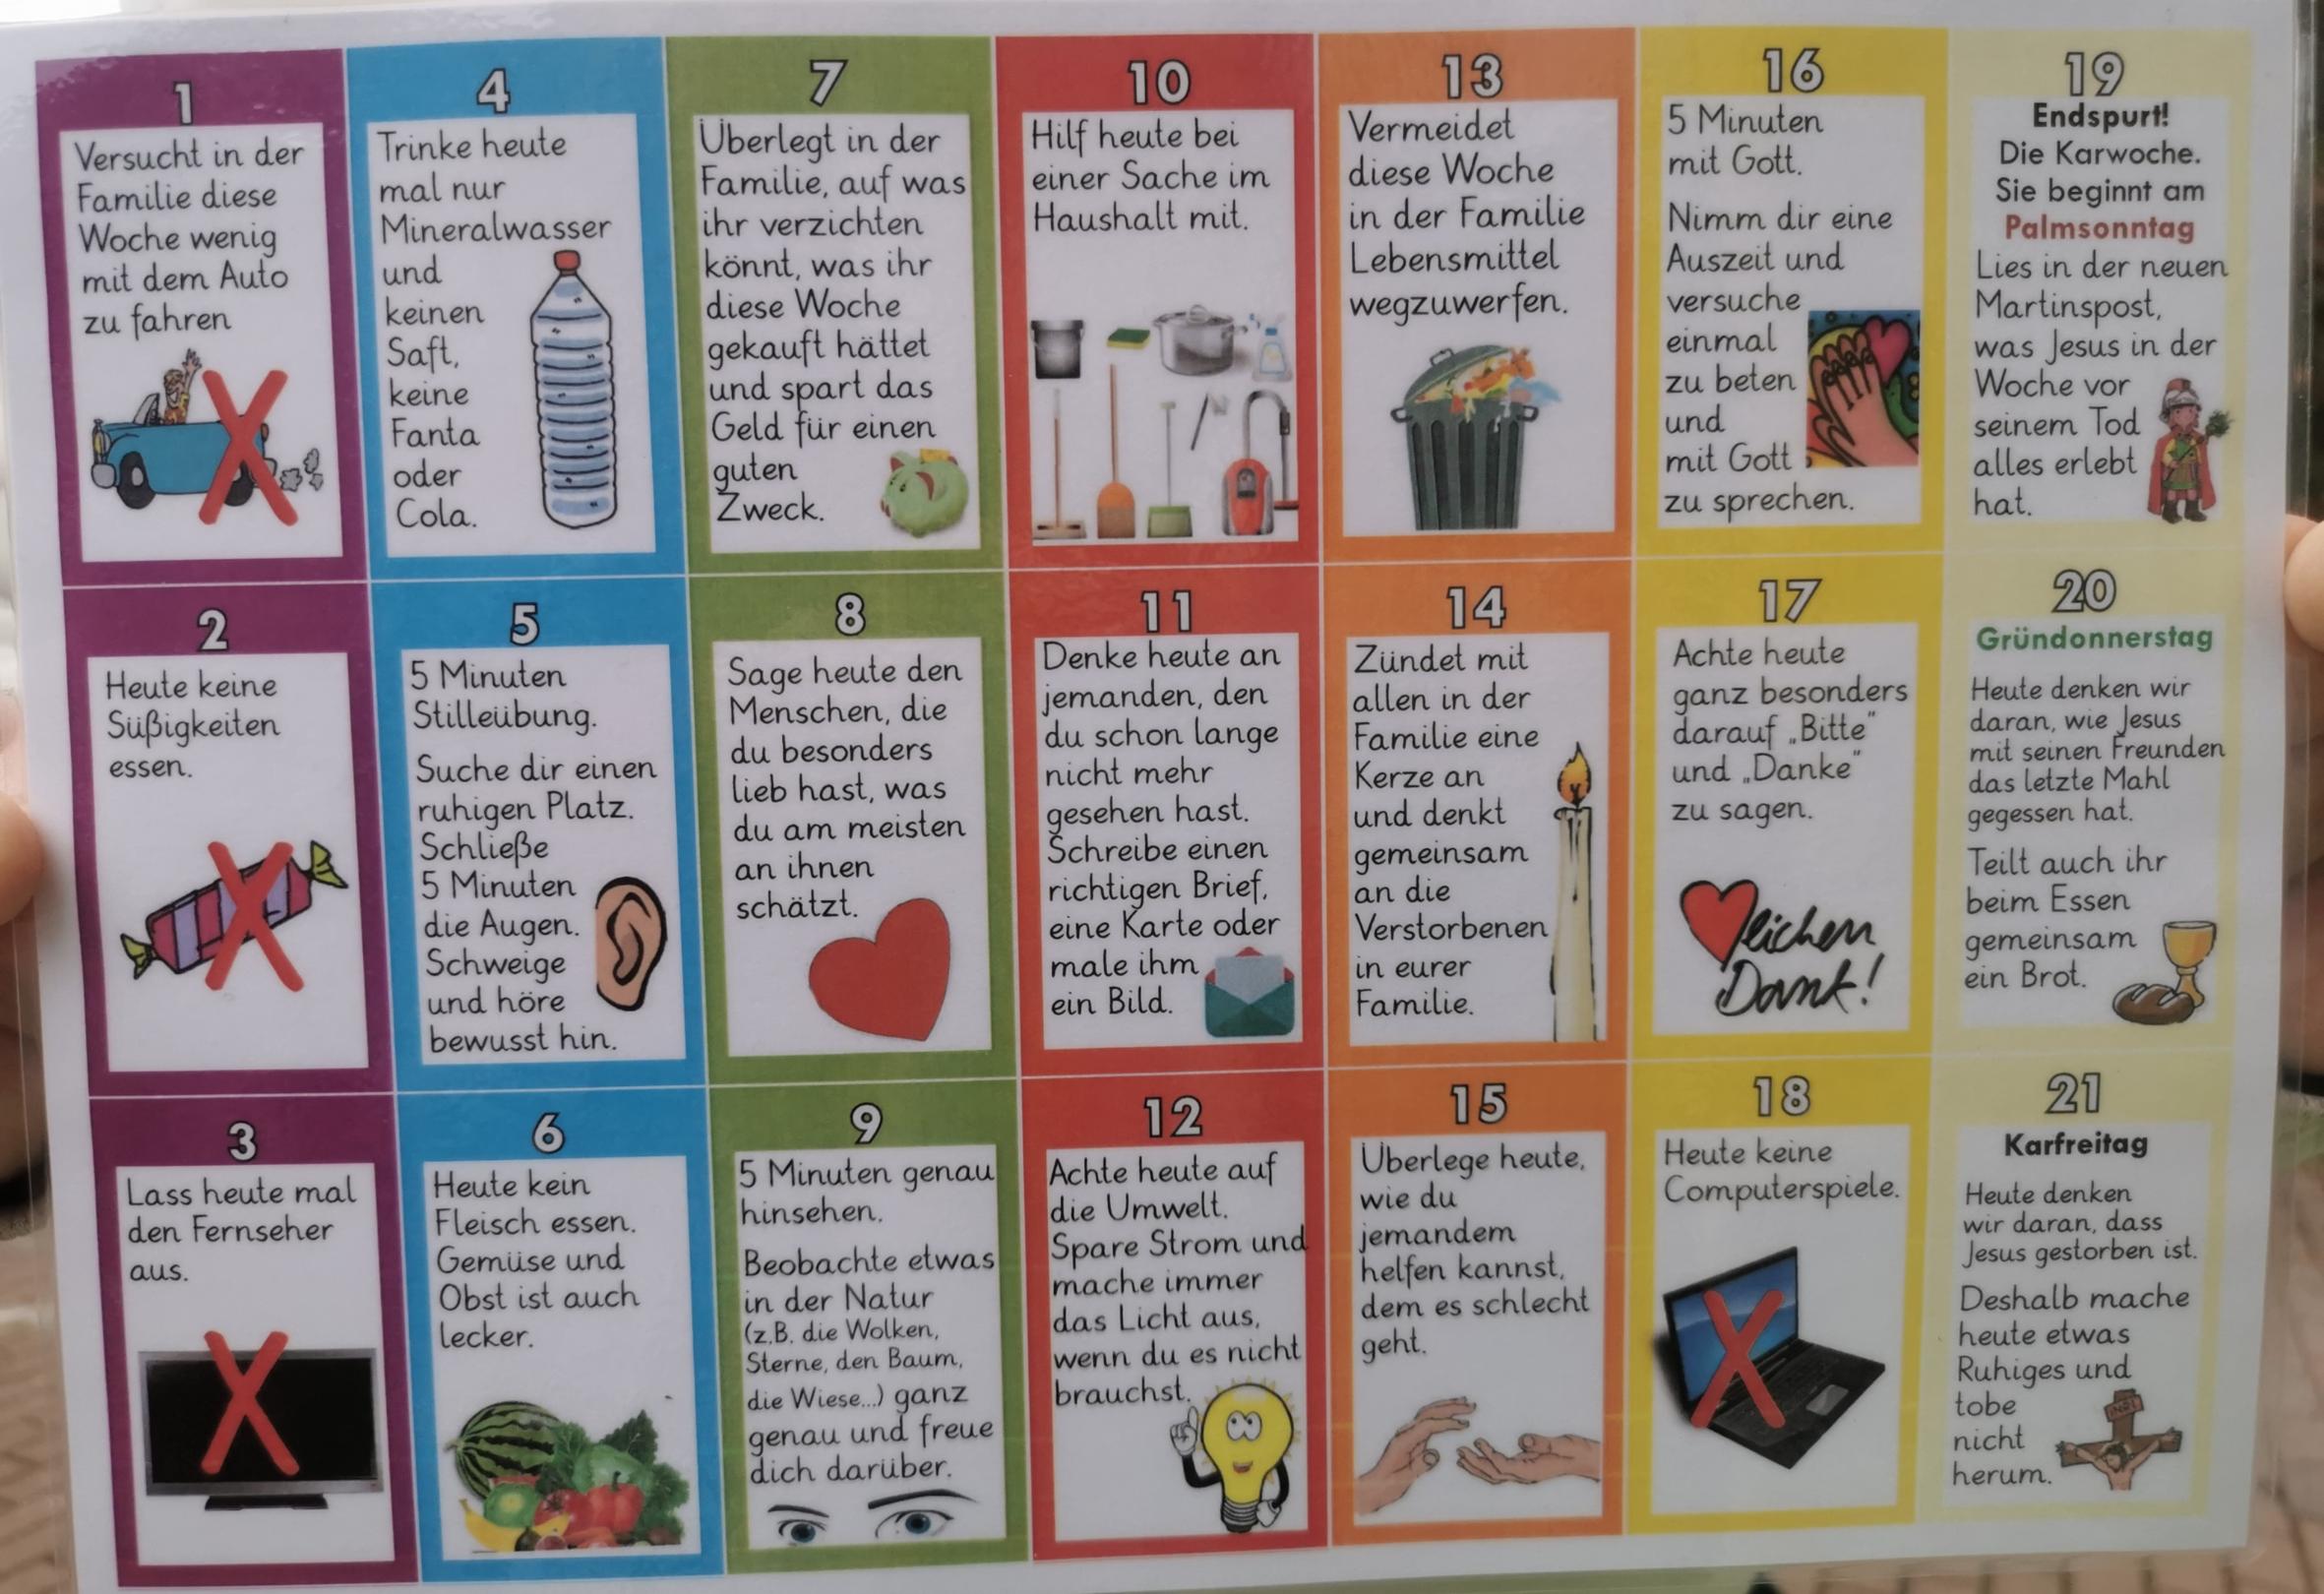 1
Versucht in der
Familie diese
Woche wenig
mit dem Auto
zu fahren
2
Heute keine
Süßigkeiten
essen.
3
Lass heute mal
den Fernseher
aus.
4
Trinke heute
mal nur
Mineralwasser
und
keinen
Saft,
keine
Fanta
oder
Cola.
5
5 Minuten
Stilleübung.
Suche dir einen
ruhigen Platz.
Schließe
5 Minuten
die Augen.
Schweige
und höre
bewusst hin.
6
Heute kein
Fleisch essen.
Gemüse und
Obst ist auch
lecker.
7
Überlegt in der
Familie, auf was
ihr verzichten
könnt, was ihr
diese Woche
gekauft hättet
und spart das
Geld für einen
guten
Zweck.
8
Sage heute den
Menschen, die
du besonders
lieb hast, was
du am meisten
an ihnen
schätzt.
9
5 Minuten genau
hinsehen.
Beobachte etwas
in der Natur
(z.B. die Wolken,
Sterne, den Baum,
die Wiese...) ganz
genau und freue
dich darüber.
10
Hilf heute bei
einer Sache im
Haushalt mit.
11
Denke heute an
jemanden, den
du schon lange
nicht mehr
gesehen hast.
Schreibe einen
richtigen Brief,
eine Karte oder
male ihm
ein Bild.
12
Achte heute auf
die Umwelt.
Spare Strom und
mache immer
das Licht aus,
wenn du es nicht
brauchst.
13
Vermeidet
diese Woche
in der Familie
Lebensmittel
wegzuwerfen.
14
Zündet mit
allen in der
Familie eine
Kerze an
und denkt
gemeinsam
an die
Verstorbenen
in eurer
Familie.
15
Überlege heute,
wie du
jemandem
helfen kannst,
dem es schlecht
geht.
16
5 Minuten
mit Gott.
Nimm dir eine
Auszeit und
versuche
einmal
zu beten
und
mit Gott
zu sprechen.
17
Achte heute
ganz besonders
darauf „Bitte"
und „Danke"
zu sagen.
lichen
Dank!
18
Heute keine
Computerspiele.
19
Endspurt!
Die Karwoche.
Sie beginnt am
Palmsonntag
Lies in der neuen
Martinspost,
was Jesus in der
Woche vor
seinem Tod
alles erlebt
hat.
20
Gründonnerstag
Heute denken wir
daran, wie Jesus
mit seinen Freunden
das letzte Mahl
gegessen hat.
Teilt auch ihr
beim Essen
gemeinsam
ein Brot.
21
Karfreitag
Heute denken
wir daran, dass
Jesus gestorben ist.
Deshalb mache
heute etwas
Ruhiges und
tobe
nicht
herum.
INRI